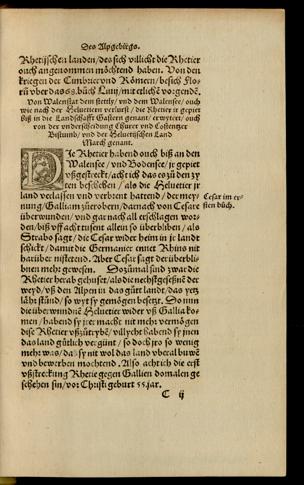 Des Alpgebirgs.
Rhetijschen landen / des sich villicht die Rhetier
ouch angenommen möchtend haben. Von den
kriegen der Cimbrier vnd Römern / besich Flo-
rū vber das 68. bůch Liuij / mit etlichē vorgendē.
Von Walenstat dem stettly / vnd dem Walensee / ouch
wie nach der Heluetiern verlust / die Rhetier jr gepiet
biß in die Landschafft Gastern genant / erwytert / ouch
von der vnderscheidung Churer vnd Costentzer
Bistumb / vnd der Heluetischen Land
March genant.
DIe Rhetier habend ouch biß an den
Walensee / vnd Bodensee / jr gepiet
vßgestreckt / acht ich das es zů den zy
ten beschehen / als die Heluetier jr
land verlassen vnd verbrent hattend / der mey-
nung / Galliam zůerobern / darnach von Cesare
überwunden / vnd gar nach all erschlagen wor-
den / biß vff acht tusent allein so überbliben / als
Strabo sagt / die Cesar wider heim in jr landt
schickt / damit die Germanier ennet Rhins nit
harüber nistetend. Aber Cesar sagt der überbli-
bnen mehr gewesen. Dozůmal sind zwar die
Rhetier herab gehuset / als die nechstgeseßnē der
weyd / vß den Alpen in das gůt landt / das yetz
lähr stůnd / so wyt sy gemögen besetzt. Do nun
die überwundnē Heluetier wider vß Gallia ko-
men / habend sy jrer macht nit mehr vermögen
dise Rhetier vßzůtrybē / villycht habend sy jnen
das land gůtlich vergünt / so doch jro so wenig
mehr was / daß sy nit wol das land vberal buwen
vnd bewerben mochtend. Also acht ich die erst
vßstreckung Rhetie gegen Gallien domalen ge
schehen sin / vor Christi geburt 55. jar.
Cesar im er-
sten bůch.
C ij